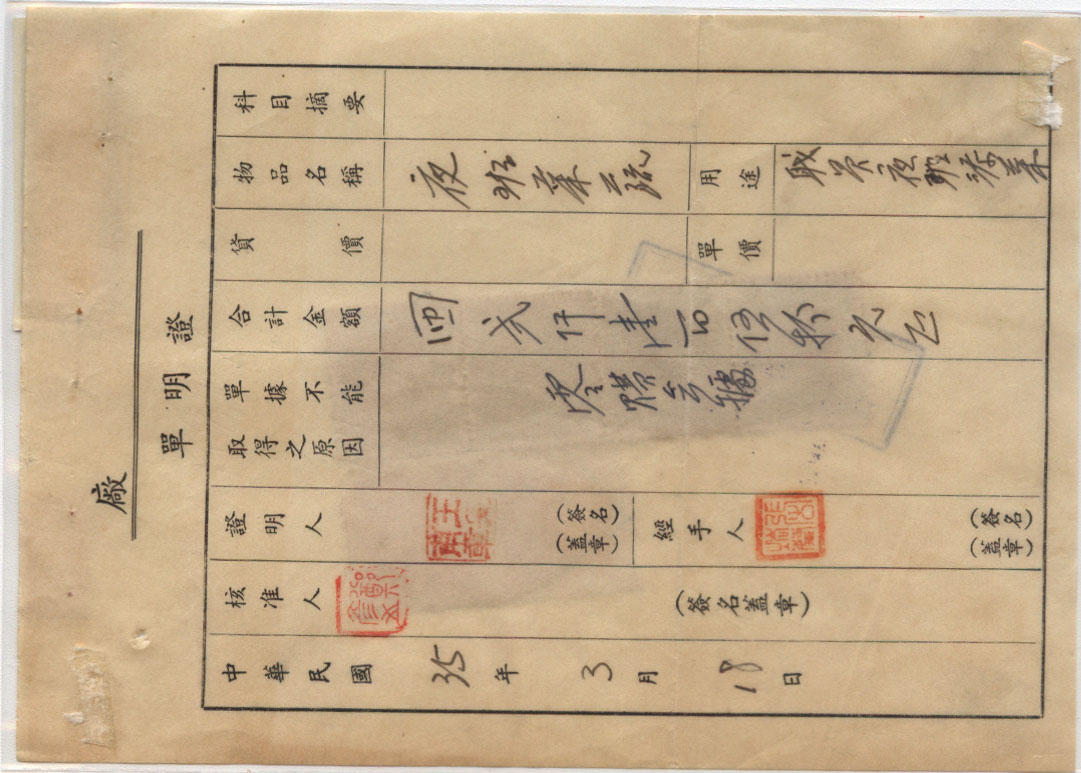 廠
證明單
科目摘要
物品名稱 夜班菜蔬 用途 職員夜班添菜
貨價 單價
合計金額 弍仟壹百伍拾元正
單據不能取得之原因 零購無據
證明人 (簽名蓋章) 經手人 (簽名蓋章)
核准人 (簽名蓋章)
中華民國 35年 3月 18日